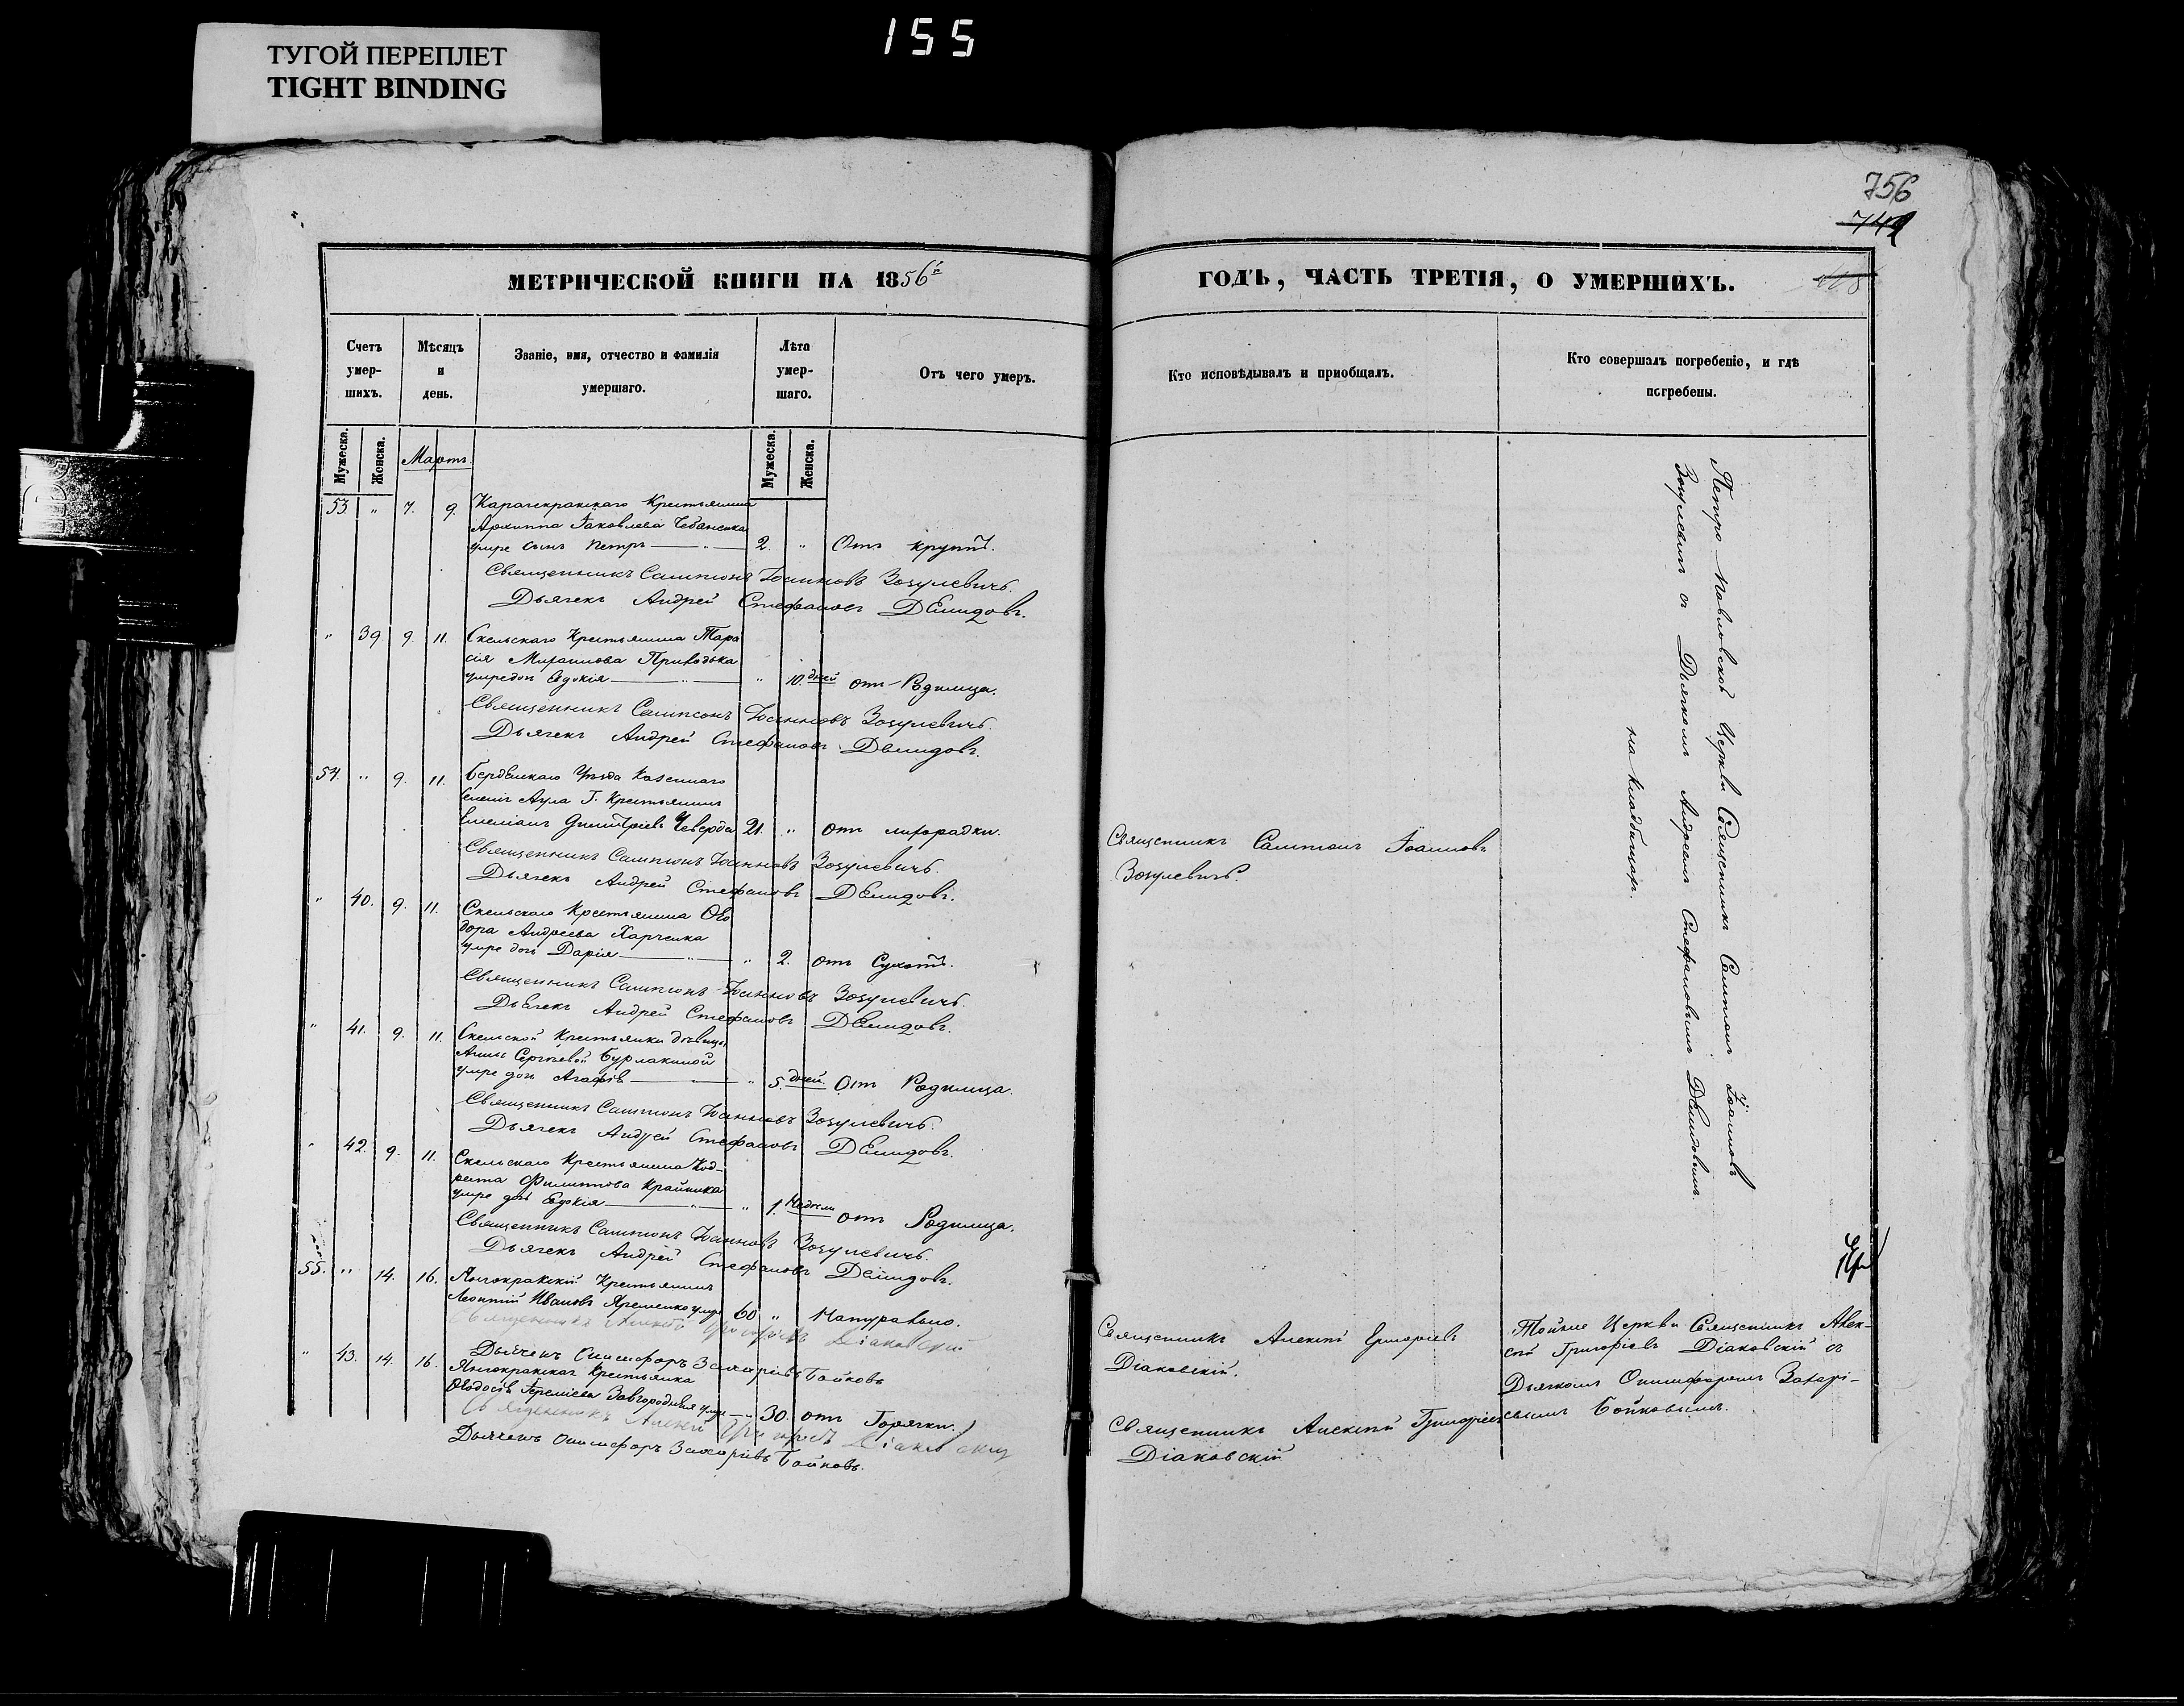 155
ТУГОЙ ПЕРЕПЛЕТ
TIGHT BINDING
756
МЕТРИЧЕСКОЙ КНИГИ НА 1856
ГОДЪ, ЧАСТЬ ТРЕТІЯ, О УМЕРШИХЪ.
Счетъ умер- шихъ.
Мѣсяцъ и день.
Званіе, имя, отчество и фамилія умершаго.
Лѣта умер- шаго.
Отъ чего умеръ.
Кто исповѣдывалъ и приобщалъ.
Кто совершалъ погребеніе, и гдѣ погребены.
Мужеска.
Женска.
Мартъ.
Мужеска.
Женска.
53. " 7. 9. Крестьянина
Архиппа Іаковлева Чебаненка
умре сынъ Петръ 2. " Отъ крупы.
Священникъ Сампсонъ Іоанновъ Зозулевичъ.
Дьячекъ Андрей Стефановъ Демидовъ.
" 39 9. 11. Скельскаго Крестьянина Тара
сія Михаилова Приходька
умре дочь Евдокія " 10. дней отъ Родимца.
Священникъ Сампсонъ Іоанновъ Зозулевичъ.
Дьячекъ Андрей Стефановъ Демидовъ.
54. " 9. 11. Бердянскаго Уѣзда Казеннаго
селенія Аула Г. Крестьянинъ
Емеліанъ Димитріевъ Чеверда 21. " отъ лихорадки.
Священникъ Сампсонъ Іоанновъ Зозулевичъ.
Дьячекъ Андрей Стефановъ Демидовъ.
Священникъ Сампсонъ Іоанновъ
Зозулевичъ.
" 40. 9. 11. Скельскаго Крестьянина Ѳео
дора Андреева Харченка
умре дочь Дарія " 2. отъ Сухоты.
Священникъ Сампсонъ Іоанновъ Зозулевичъ.
Дьячекъ Андрей Стефановъ Демидовъ.
" 41. 9. 11. Скельской Крестьянки дѣвицы
Анны Сергіевой Бурлакиной
умре дочь Агафія " 5. дней. Отъ Родимца.
Священникъ Сампсонъ Іоанновъ Зозулевичъ.
Дьячекъ Андрей Стефановъ Демидовъ.
" 42. 9. 11. Скельскаго Крестьянина Код-
рата Филиппова Крайника
умре дочь Евдокія " 1. Недѣли отъ Родимца.
Священникъ Сампсонъ Іоанновъ Зозулевичъ.
Дьячекъ Андрей Стефановъ Демидовъ.
Петро-Павловской Церкви Священникъ Сампсонъ Іоанновъ
Зозулевичъ съ Дьячкомъ Андреемъ Стефановымъ Демидовымъ.
на кладбищахъ.
55. " 14. 16. Янчокракскій Крестьянинъ
Леонтій Ивановъ Яременко умре 60 " Натурально.
Священникъ Алексій Григоріевъ Діаковскій
Дьячекъ Онисифоръ Захаріевъ Бойковъ
Священникъ Алексій Григоріевъ
Діаковскій.
" 43. 14. 16. Янчокракская Крестьянка
Ѳеодосія Іереміева Завгородняя умре " 30. отъ Горячки.
Священникъ Алексій Григоріевъ Діаковскій
Дьячекъ Онисифоръ Захаріевъ Бойковъ.
Священникъ Алексій Григоріевъ
Діаковскій
Тойже Церкви Священникъ Алек-
сій Григоріевъ Діаковскій съ
Дьячкомъ Онисифоромъ Захарі-
евымъ Бойковымъ.